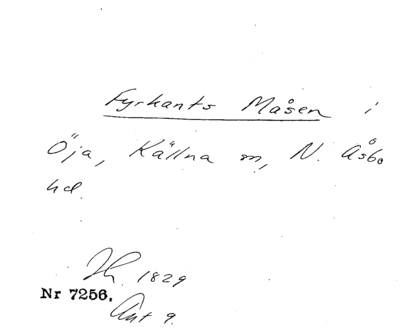 Fyrkants Måsen i
Öja, Källna sn, N. Åsbo
hd.
Hr. 1829
Nr 7256.
Ant 9.